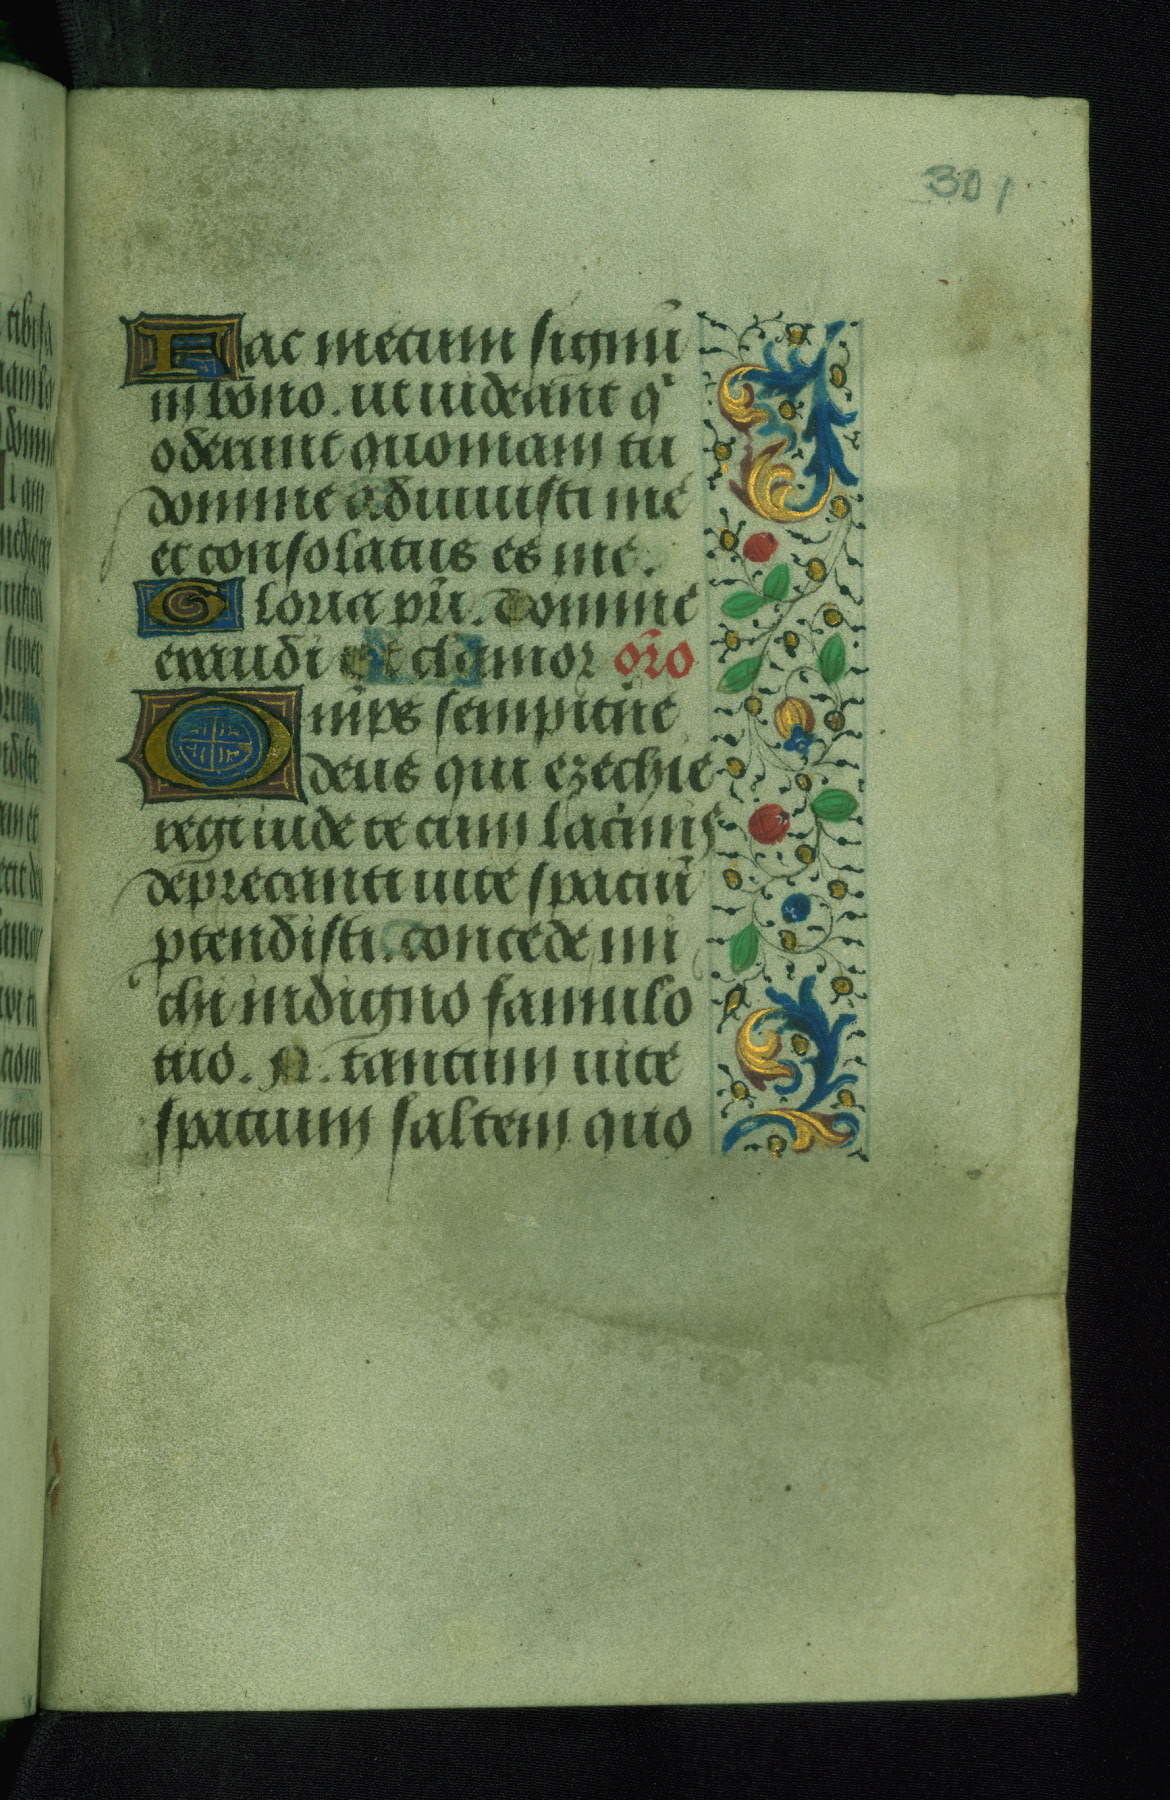 301
Fac mecum signū
in bono. ut uideant q̄
oderunt quoniam tu
domine adiuuisti me
et consolatus es me.
Gloria pr̄i. Domine
exaudi et clamor or̄o
Om̄ps sempit̄ne
deus qui ezechie
regi iude te cum lacrimis
deprecanti uite spaciū
ptendisti. concede mi
chi indigno famulo
tuo. N. tantum uite
spacium saltem quo